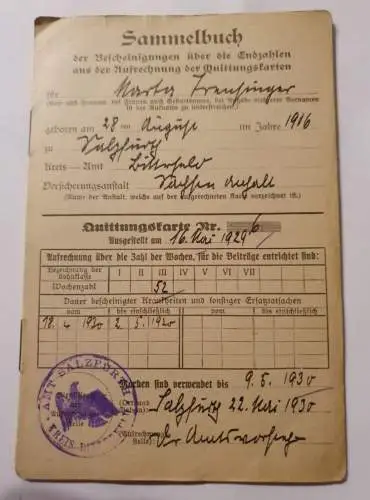 Sammelbuch
der Bescheinigungen über die Endzahlen
aus der Aufrechnung der Quittungskarten
für Marta
(Ruf- und Zuname, bei Frauen auch Geburtsname, bei Angabe mehrerer Vornamen
ist der Rufname zu unterstreichen.)
geboren am 28 ten August im Jahre 1916
zu Salzfurth
Kreis-Amt Bitterfeld
Versicherungsanstalt Sachsen Anhalt
(Name der Anstalt, welche auf der aufgerechneten Karte vorgezeichnet ist.)
Quittungskarte Nr. 6
Ausgestellt am 16. Mai 1929
Aufrechnung über die Zahl der Wochen, für die Beiträge entrichtet sind:
Bezeichnung der Lohnklasse I II III IV V VI VII
Wochenzahl 52
Dauer bescheinigter Krankheiten und sonstiger Ersatztatsachen
vom bis einschließlich vom bis einschließlich
18. 4 1930 2. 5. 1930
Marken sind verwendet bis 9. 5. 1930
AMT SALZFURTH
KREIS BITTERFELD
Salzfurth 22. Mai 1930
(Ort und Datum)
Der Amtsvorsteher